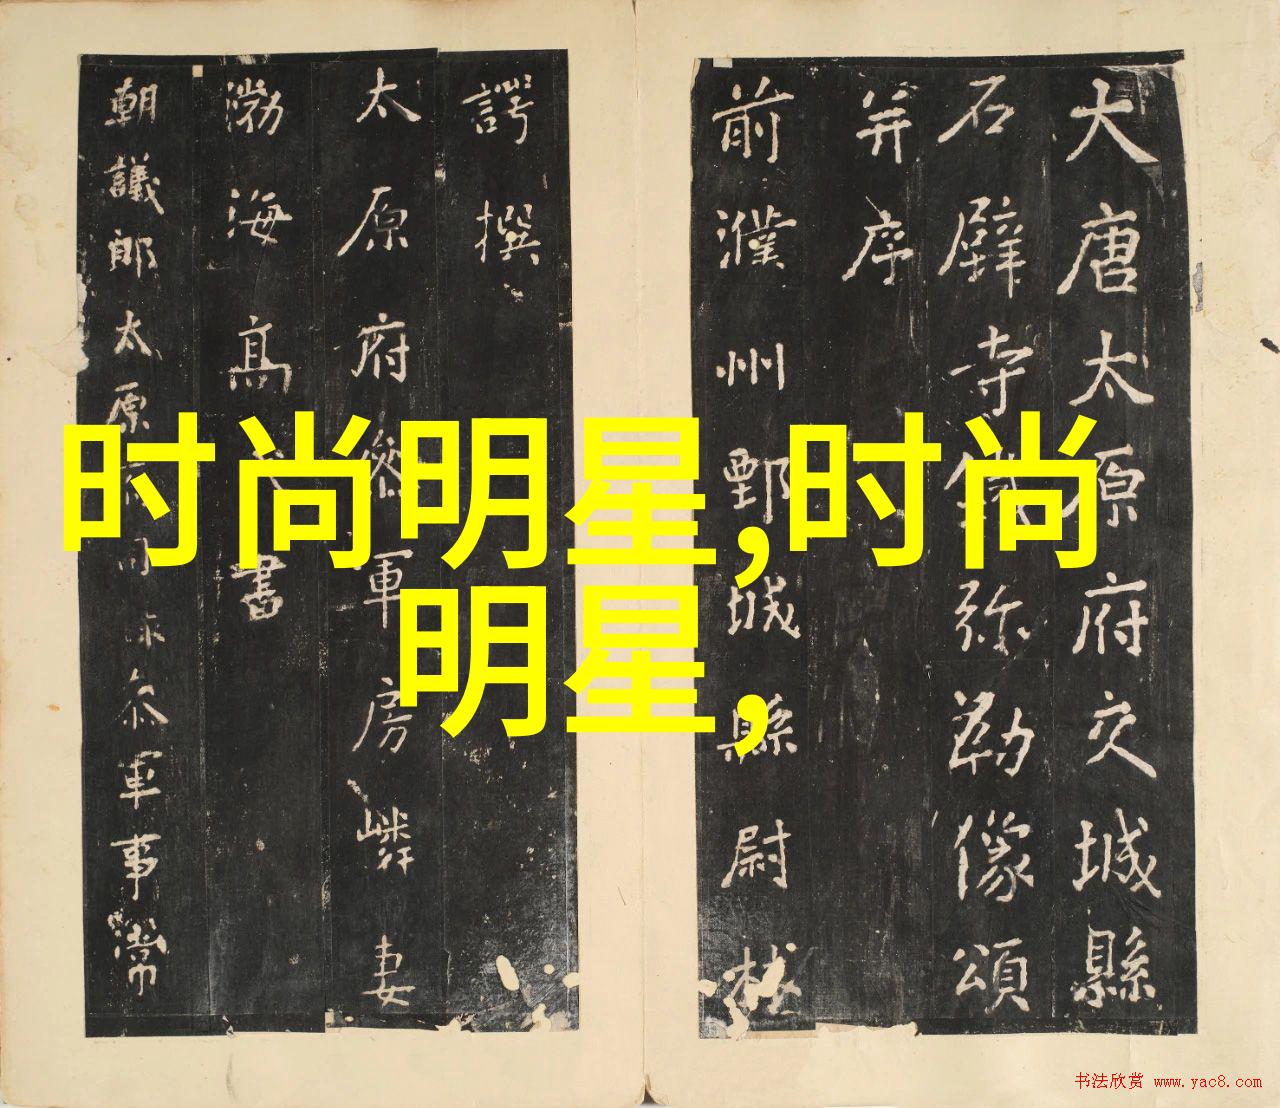 大唐太原府交城縣
石壁寺弥勒像頌
并序
前濮州鄄城縣尉林
諤撰
太原府叅軍房嶙妻
渤海髙書
朝議郎太原叅軍事常
时尚明星,时尚
明星,
书法欣赏 www.yac8.com